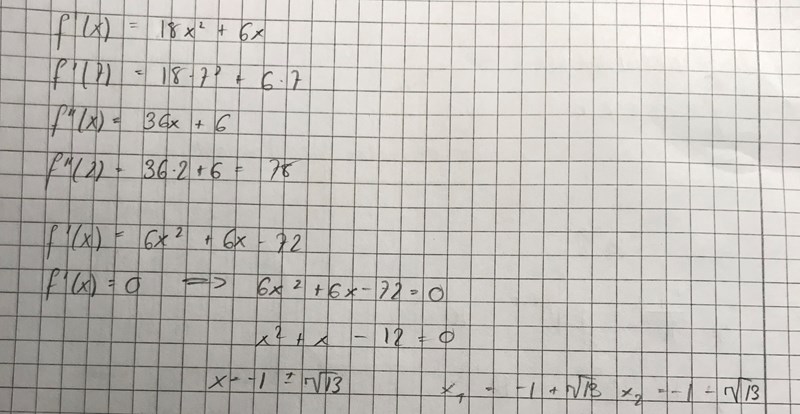 f'(x) = 18x² + 6x
f'(7) = 18·7² + 6·7
f''(x) = 36x + 6
f''(2) = 36·2 + 6 = 78
f'(x) = 6x² + 6x - 72
f'(x) = 0 => 6x² + 6x - 72 = 0
x² + x - 12 = 0
x = -1 ± √13 x₁ = -1 + √13 x₂ = -1 - √13